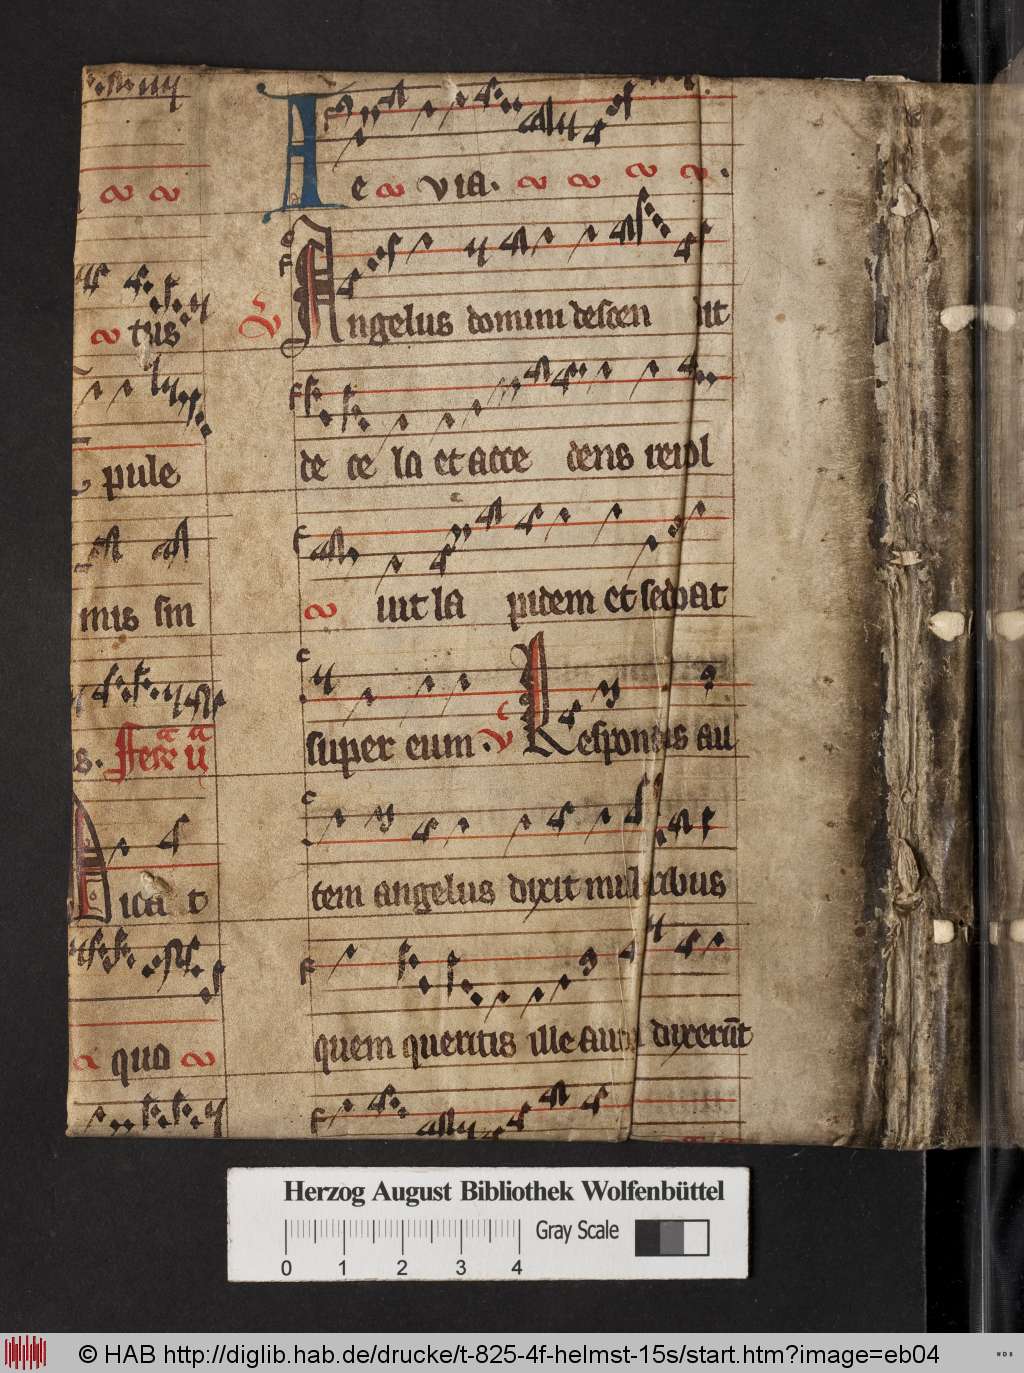 tus
pule
mis sin
s. Feria
icat
qua
Ae via.
V Angelus domini descen dit
de ce la et acce dens revol
vit la pidem et sedebat
super eum. V Respondens au
tem angelus dixit mulieribus
quem queritis ille aut dixerūt
Herzog August Bibliothek Wolfenbüttel
Gray Scale
0 1 2 3 4
© HAB http://diglib.hab.de/drucke/t-825-4f-helmst-15s/start.htm?image=eb04